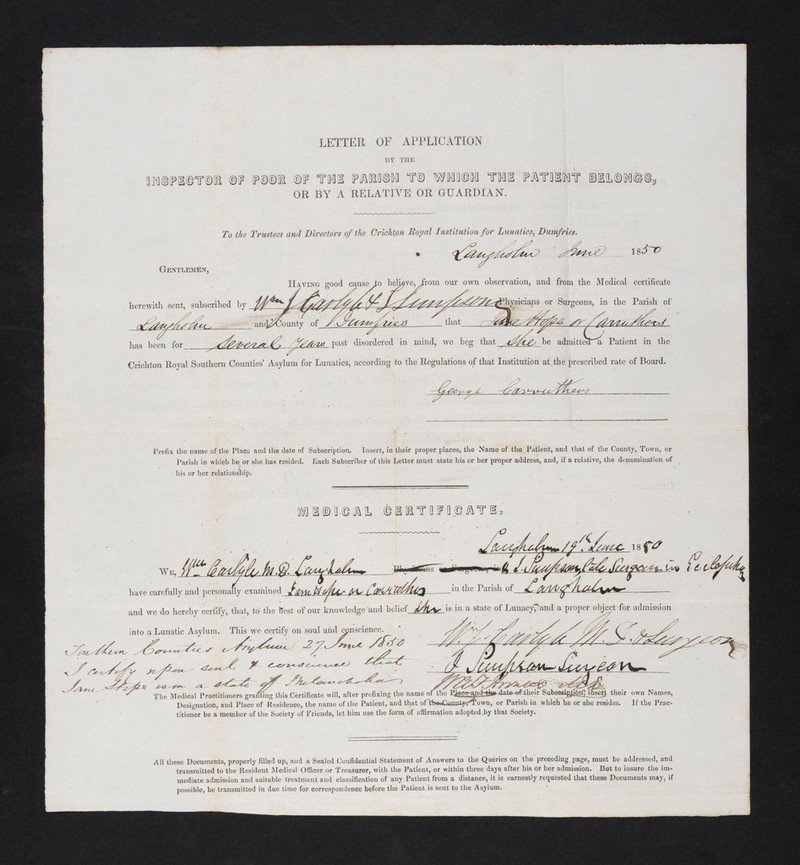 LETTER OF APPLICATION
BY THE
INSPECTOR OF POOR OF THE PARISH TO WHICH THE PATIENT BELONGS,
OR BY A RELATIVE OR GUARDIAN.
To the Trustees and Directors of the Crichton Royal Institution for Lunatics, Dumfries.
Langholm June 1850
GENTLEMEN,
HAVING good cause to believe, from our own observation, and from the Medical certificate
herewith sent, subscribed by Wm Carlyle & J Simpson Physicians or Surgeons, in the Parish of
Langholm and County of Dumfries that Jane Hope or Carruthers
has been for Several Years past disordered in mind, we beg that She be admitted a Patient in the
Crichton Royal Southern Counties' Asylum for Lunatics, according to the Regulations of that Institution at the prescribed rate of Board.
George Carruthers
Prefix the name of the Place and the date of Subscription. Insert, in their proper places, the Name of the Patient, and that of the County, Town, or
Parish in which he or she has resided. Each Subscriber of this Letter must state his or her proper address, and, if a relative, the denomination of
his or her relationship.
MEDICAL CERTIFICATE.
Langholm 19th June 1850
WE, Wm Carlyle M.D. Langholm & J. Simpson Surgeon in
have carefully and personally examined Jane Hope or Carruthers in the Parish of Langholm
and we do hereby certify, that, to the best of our knowledge and belief She is in a state of Lunacy, and a proper object for admission
into a Lunatic Asylum. This we certify on soul and conscience.
Southern Counties Asylum 27 June 1850
Wm Carlyle M.D. & Surgeon
I certify upon soul & conscience that
J Simpson Surgeon
Jane Hope is in a state of Melancholia
The Medical Practitioners granting this Certificate will, after prefixing the name of the Place and the date of their Subscription, insert their own Names,
Designation, and Place of Residence, the name of the Patient, and that of the County, Town, or Parish in which he or she resides. If the Prac-
titioner be a member of the Society of Friends, let him use the form of affirmation adopted by that Society.
All these Documents, properly filled up, and a Sealed Confidential Statement of Answers to the Queries on the preceding page, must be addressed, and
transmitted to the Resident Medical Officer or Treasurer, with the Patient, or within three days after his or her admission. But to insure the im-
mediate admission and suitable treatment and classification of any Patient from a distance, it is earnestly requested that these Documents may, if
possible, be transmitted in due time for correspondence before the Patient is sent to the Asylum.